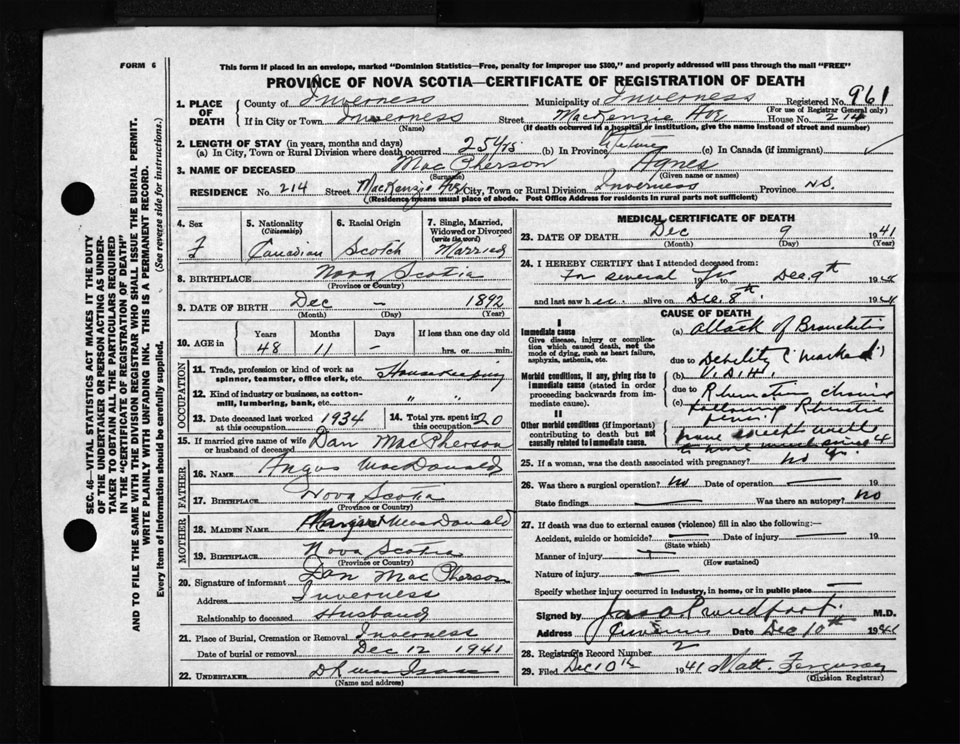 FORM 6
This form if placed in an envelope, marked "Dominion Statistics—Free, penalty for improper use $300," and properly addressed will pass through the mail "FREE"
PROVINCE OF NOVA SCOTIA—CERTIFICATE OF REGISTRATION OF DEATH
1. PLACE OF DEATH County of Inverness Municipality of Inverness Registered No. 961
(For use of Registrar General only)
If in City or Town Inverness Street MacKenzie Ave House No. 214
(Name) (If death occurred in a hospital or institution, give the name instead of street and number)
2. LENGTH OF STAY (in years, months and days)
(a) In City, Town or Rural Division where death occurred 25 yrs (b) In Province lifetime (c) In Canada (if immigrant)
3. NAME OF DECEASED MacPherson Agnes
(Surname) (Given name or names)
RESIDENCE No. 214 Street MacKenzie Ave City, Town or Rural Division Inverness Province N.S.
(Residence means usual place of abode. Post Office Address for residents in rural parts not sufficient)
SEC. 46—VITAL STATISTICS ACT MAKES IT THE DUTY
OF THE UNDERTAKER OR PERSON ACTING AS UNDER-
TAKER TO OBTAIN ALL THE PARTICULARS REQUIRED
IN THE "CERTIFICATE OF REGISTRATION OF DEATH"
AND TO FILE THE SAME WITH THE DIVISION REGISTRAR WHO SHALL ISSUE THE BURIAL PERMIT.
WRITE PLAINLY WITH UNFADING INK. THIS IS A PERMANENT RECORD.
Every item of Information should be carefully supplied. (See reverse side for instructions.)
4. Sex 5. Nationality (Citizenship) 6. Racial Origin 7. Single, Married, Widowed or Divorced (write the word)
F Canadian Scotch Married
8. BIRTHPLACE Nova Scotia
(Province or Country)
9. DATE OF BIRTH Dec — 1892
(Month) (Day) (Year)
10. AGE in Years Months Days If less than one day
48 11 — hrs. or min.
OCCUPATION
11. Trade, profession or kind of work as spinner, teamster, office clerk, etc. Housekeeping
12. Kind of industry or business, as cotton-mill, lumbering, bank, etc. " "
13. Date deceased last worked at this occupation 1934 14. Total yrs. spent in 20
15. If married give name of wife or husband of deceased Dan MacPherson
FATHER
16. NAME Angus MacDonald
17. BIRTHPLACE Nova Scotia
(Province or Country)
MOTHER
18. MAIDEN NAME Margaret MacDonald
19. BIRTHPLACE Nova Scotia
(Province or Country)
20. Signature of informant Dan MacPherson
Address Inverness
Relationship to deceased Husband
21. Place of Burial, Cremation or Removal Inverness
Date of burial or removal Dec 12 1941
22. UNDERTAKER
(Name and address)
MEDICAL CERTIFICATE OF DEATH
23. DATE OF DEATH Dec 9 1941
(Month) (Day) (Year)
24. I HEREBY CERTIFY that I attended deceased from:
For several yrs to Dec. 9th 194
and last saw her alive on Dec. 8th 194
CAUSE OF DEATH
I
Immediate cause
Give disease, injury or complication which caused death, not the mode of dying, such as heart failure, asphyxia, asthenia, etc.
(a) Attack of Bronchitis
due to Debility (marked)
Morbid conditions, if any, giving rise to immediate cause (stated in order proceeding backwards from immediate cause).
(b)
due to
(c) following
II
Other morbid conditions (if important) contributing to death but not causally related to immediate cause.
25. If a woman, was the death associated with pregnancy? no
26. Was there a surgical operation? No Date of operation — 19
State findings — Was there an autopsy? No
27. If death was due to external causes (violence) fill in also the following:—
Accident, suicide or homicide? — Date of injury — 19
(State which)
Manner of injury —
(How sustained)
Nature of injury —
Specify whether injury occurred in industry, in home, or in public place —
Signed by Jas. A. Proudfoot M.D.
Address Date Dec 10th 194
28. Registrar's Record Number 2
29. Filed Dec 10th 1941 Matt. Ferguson
(Division Registrar)